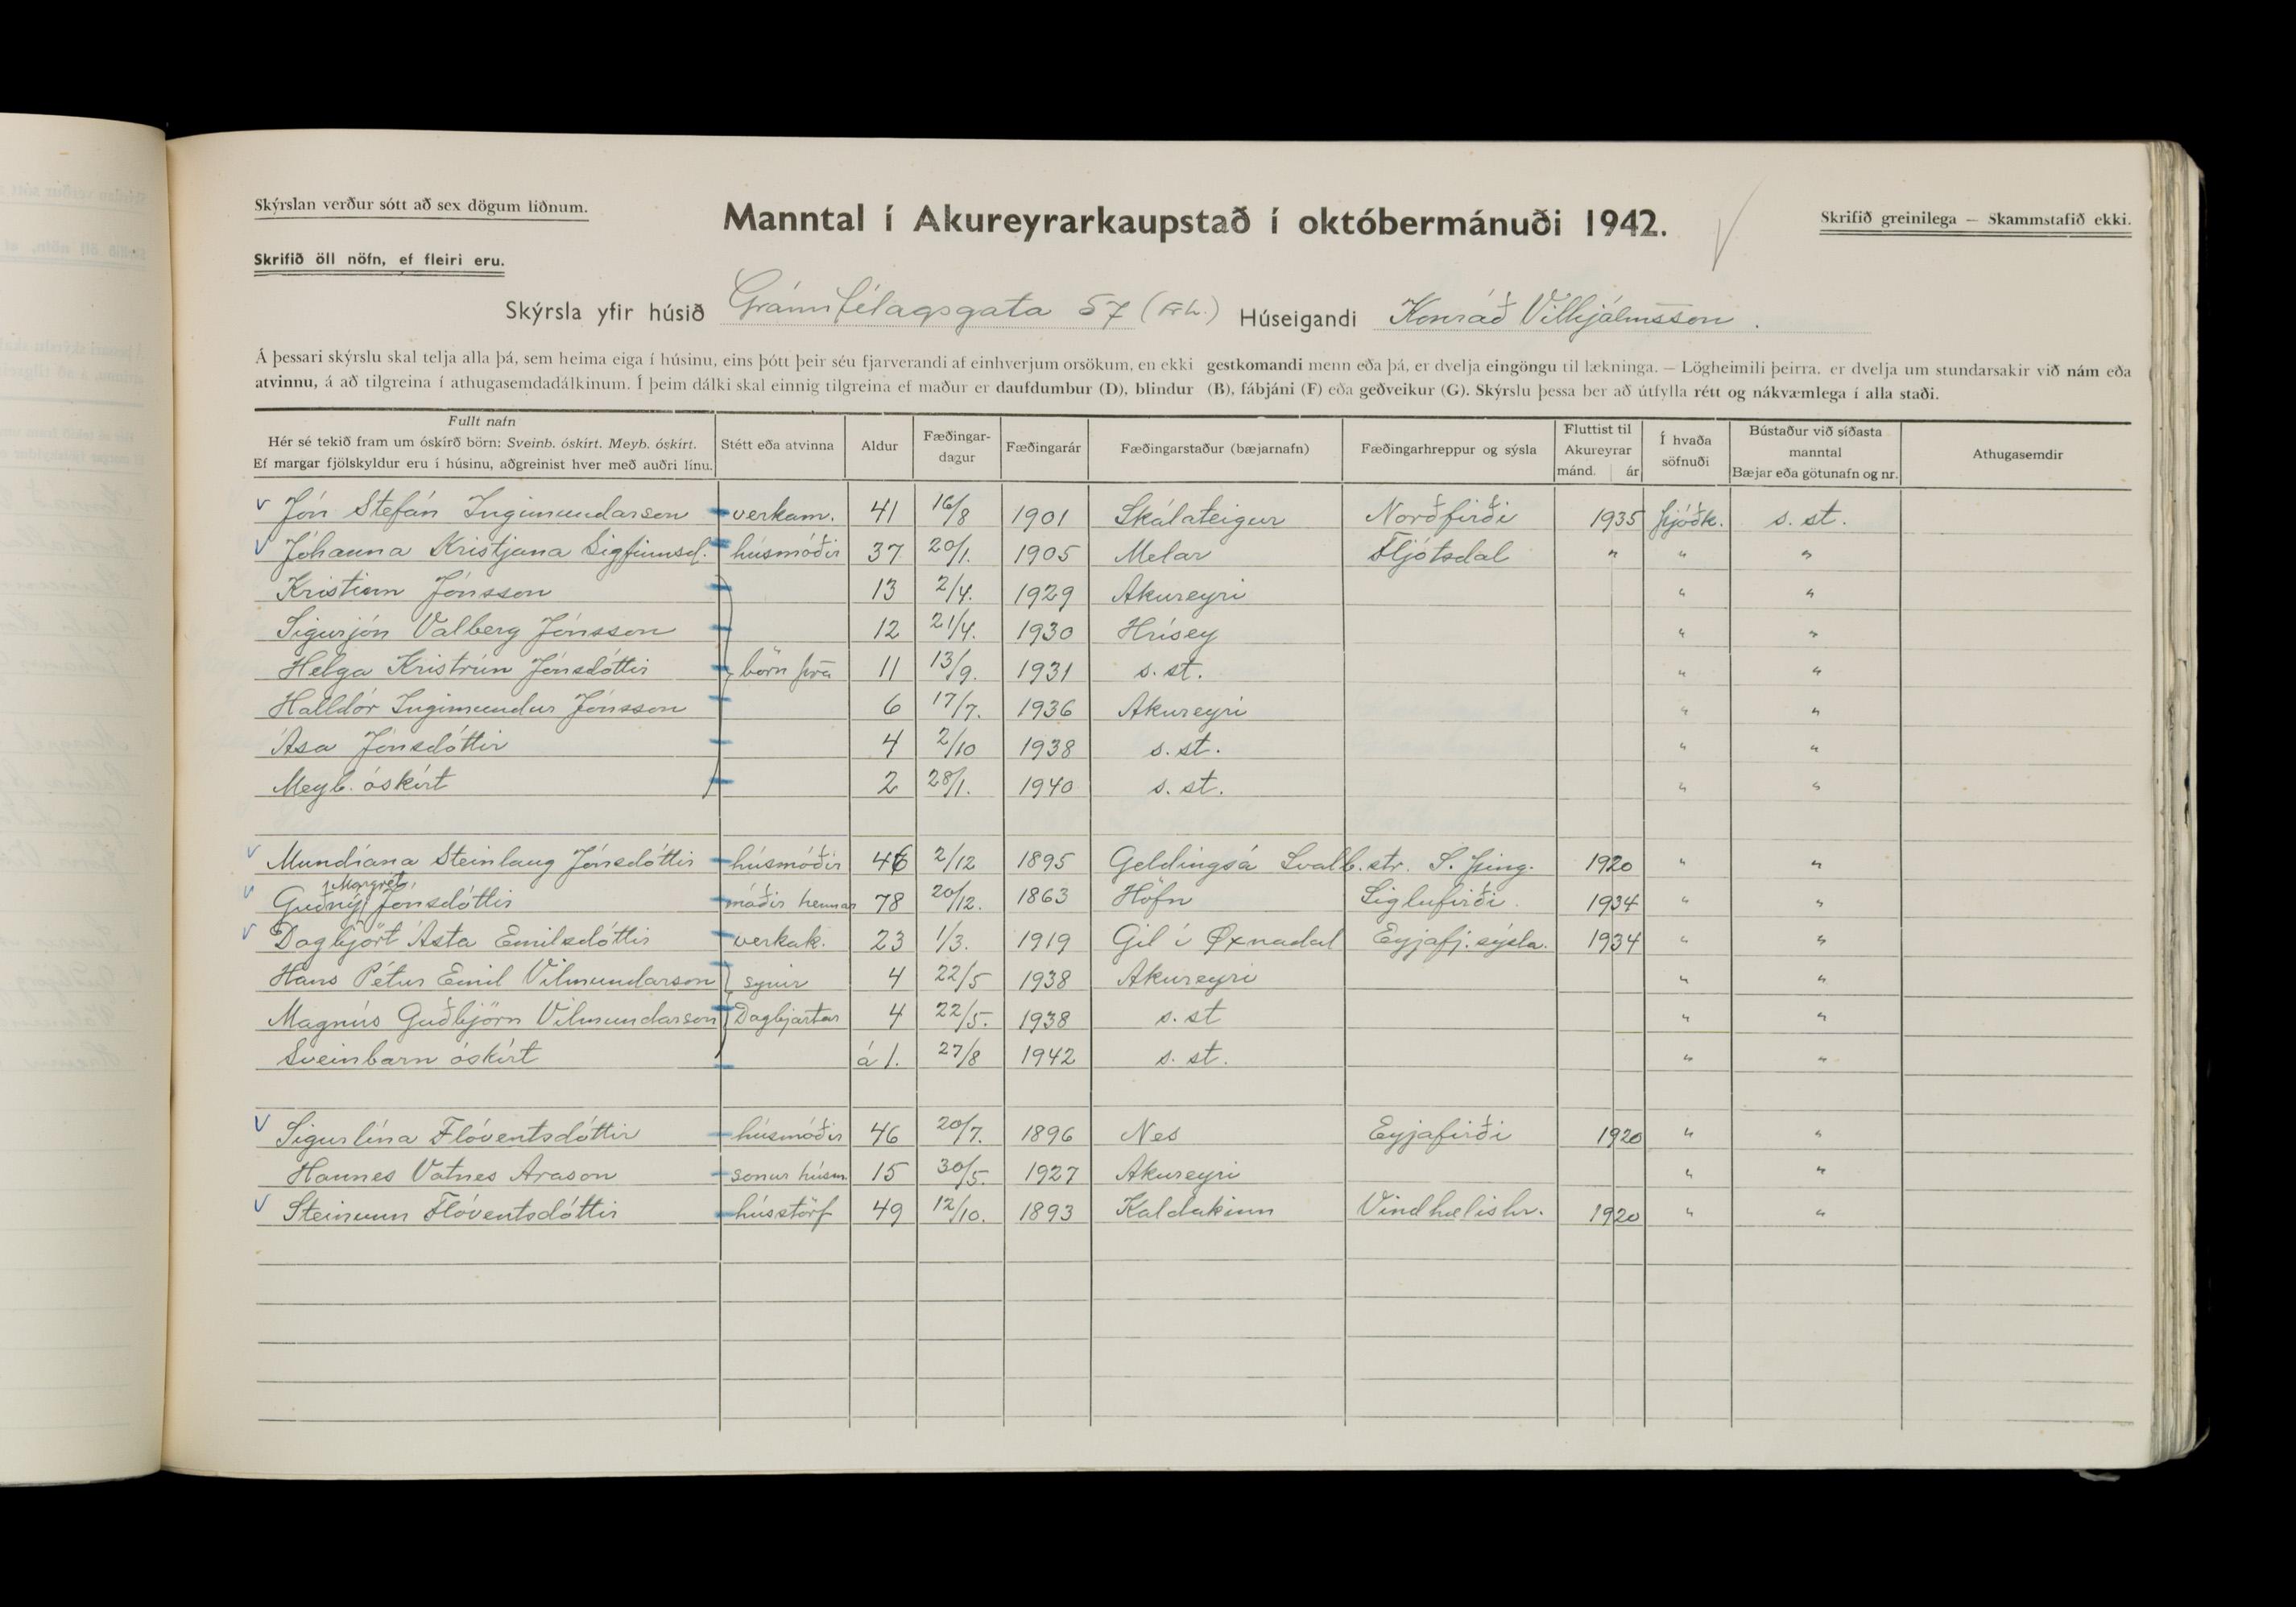 Skýrslan verður sótt að sex dögum liðnum.
Manntal í Akureyrarkaupstað í októbermánuði 1942.
Skrifið greinilega — Skammstafið ekki.
Skrifið öll nöfn, ef fleiri eru.
Skýrsla yfir húsið Gránufélagsgata 57 (Frh.) Húseigandi Konráð Vilhjálmsson.
Á þessari skýrslu skal telja alla þá, sem heima eiga í húsinu, eins þótt þeir séu fjarverandi af einhverjum orsökum, en ekki gestkomandi menn eða þá, er dvelja eingöngu til lækninga. — Lögheimili þeirra, er dvelja um stundarsakir við nám eða
atvinnu, á að tilgreina í athugasemdadálkinum. Í þeim dálki skal einnig tilgreina ef maður er daufdumbur (D), blindur (B), fábjáni (F) eða geðveikur (G). Skýrslu þessa ber að útfylla rétt og nákvæmlega í alla staði.
Fullt nafn Hér sé tekið fram um óskírð börn: Sveinb. óskírt. Meyb. óskírt. Ef margar fjölskyldur eru í húsinu, aðgreinist hver með auðri línu. Stétt eða atvinna Aldur Fæðingar-dagur Fæðingarár Fæðingarstaður (bæjarnafn) Fæðingarhreppur og sýsla Fluttist til Akureyrar mánd. ár Í hvaða söfnuði Bústaður við síðasta manntal Bæjar eða götunafn og nr. Athugasemdir
V Jón Stefán Ingimundarson verkam. 41 16/8 1901 Skálateigur Norðfirði 1935 þjóðk. s. st.
V Jóhanna Kristjana Sigfinnsd. húsmóðir 37 20/1. 1905 Melar Fljótsdal " " "
Kristinn Jónsson 13 2/4. 1929 Akureyri " "
Sigurjón Valberg Jónsson 12 21/4. 1930 Hrísey " "
Helga Kristrún Jónsdóttir börn þra 11 13/9. 1931 s. st. " "
Halldór Ingimundur Jónsson 6 17/7. 1936 Akureyri " "
Ása Jónsdóttir 4 2/10 1938 s. st. " "
Meyb. óskírt 2 28/1. 1940 s. st. " "
V Mundíana Steinlaug Jónsdóttir húsmóðir 46 2/12 1895 Geldingsá Svalb.str. S. þing. 1920 " "
Margrét
V Guðný Jónsdóttir móðir hennar 78 20/12. 1863 Höfn Siglufirði. 1934 " "
V Dagbjört Ásta Emilsdóttir verkak. 23 1/3. 1919 Gil í Øxnadal Eyjafj.sýsla. 1934 " "
Hans Pétur Emil Vilmundarson synir 4 22/5 1938 Akureyri " "
Magnús Guðbjörn Vilmundarson Dagbjartar 4 22/5. 1938 s. st " "
Sveinbarn óskírt á 1. 27/8 1942 s. st. " "
V Sigurlína Flóventsdóttir húsmóðir 46 20/7. 1896 Nes Eyjafirði 1920 " "
Hannes Vatnes Arason sonur húsm. 15 30/5. 1927 Akureyri " "
V Steinunn Flóventsdóttir hússtörf 49 12/10. 1893 Kaldakinn Vindhælishr. 1920 " "